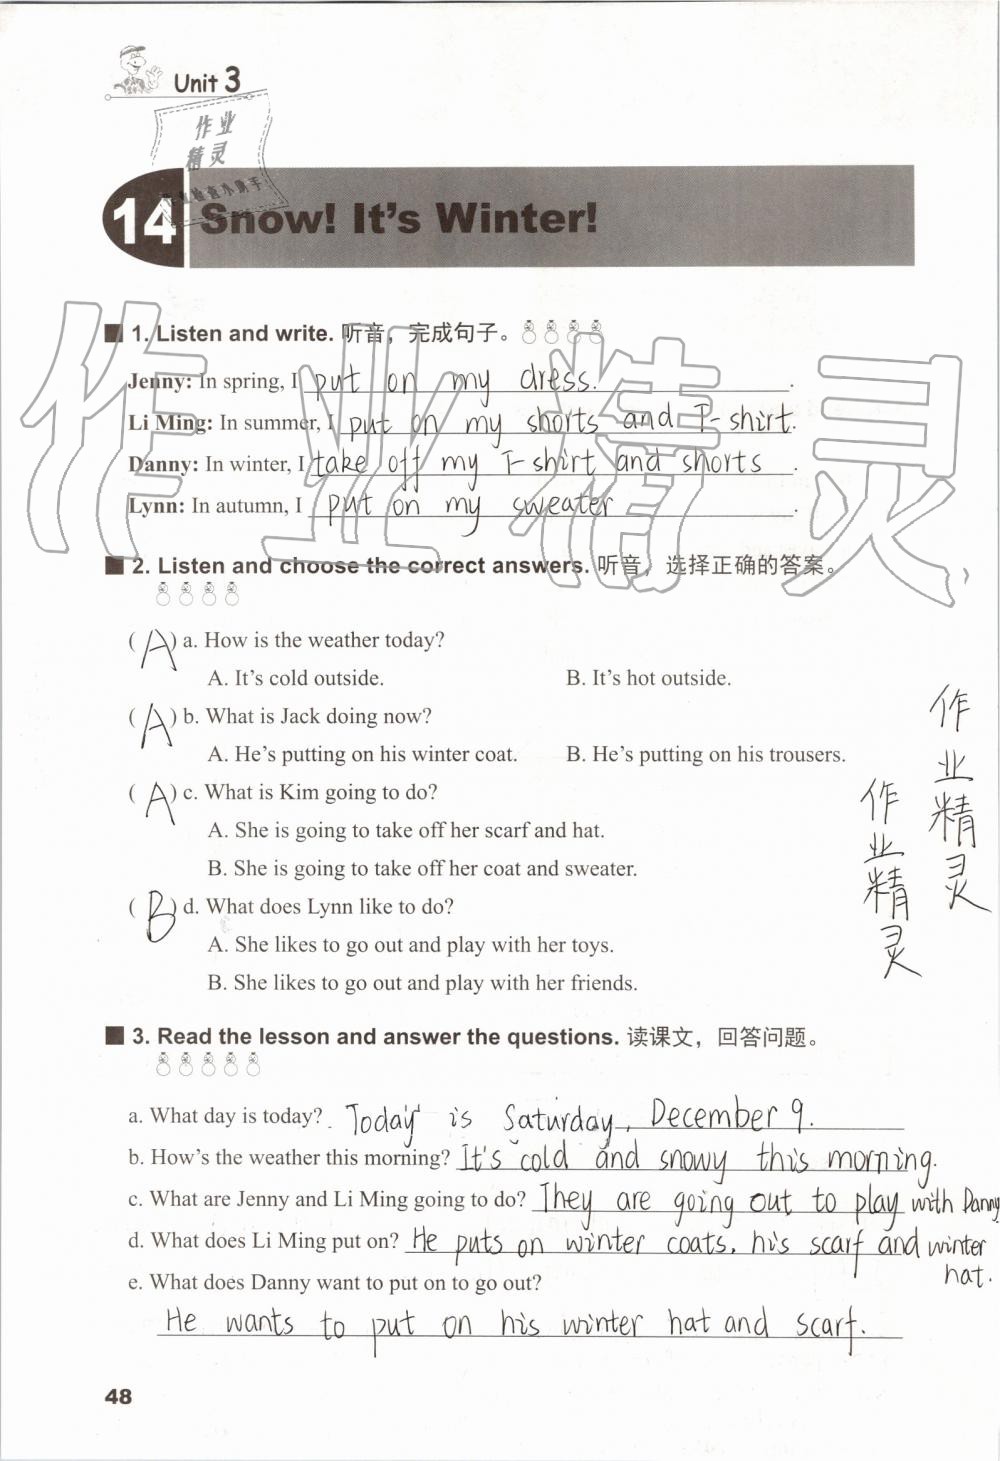 Unit 3
作业
精灵
14 Snow! It's Winter!
1. Listen and write. 听音，完成句子。
Jenny: In spring, I put on my dress. .
Li Ming: In summer, I put on my shorts and T-shirt.
Danny: In winter, I take off my T-shirt and shorts .
Lynn: In autumn, I put on my sweater .
作业精灵
2. Listen and choose the correct answers. 听音，选择正确的答案。
( A ) a. How is the weather today?
A. It's cold outside. B. It's hot outside.
( A ) b. What is Jack doing now?
A. He's putting on his winter coat. B. He's putting on his trousers.
( A ) c. What is Kim going to do?
A. She is going to take off her scarf and hat.
B. She is going to take off her coat and sweater.
( B ) d. What does Lynn like to do?
A. She likes to go out and play with her toys.
B. She likes to go out and play with her friends.
作业精灵
作业精灵
3. Read the lesson and answer the questions. 读课文，回答问题。
a. What day is today? Today is Saturday, December 9.
b. How's the weather this morning? It's cold and snowy this morning.
c. What are Jenny and Li Ming going to do? They are going out to play with Danny
d. What does Li Ming put on? He puts on winter coats, his scarf and winter
hat.
e. What does Danny want to put on to go out?
He wants to put on his winter hat and scarf.
48